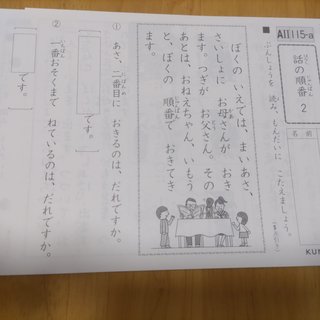 AⅡ115-a
話の順番 2
はなし じゅんばん
名前
■ ぶんしょうを 読み、もんだいに こたえましょう。
ぼくの いえでは、まいあさ、
さいしょに お母さんが おき
ます。つぎが お父さん。その
あとは、おねえちゃん、いもう
と、ぼくの 順番で おきてき
ます。
① あさ、二番目に おきるのは、だれですか。
です。
② 一番おそくまで ねているのは、だれですか。
です。